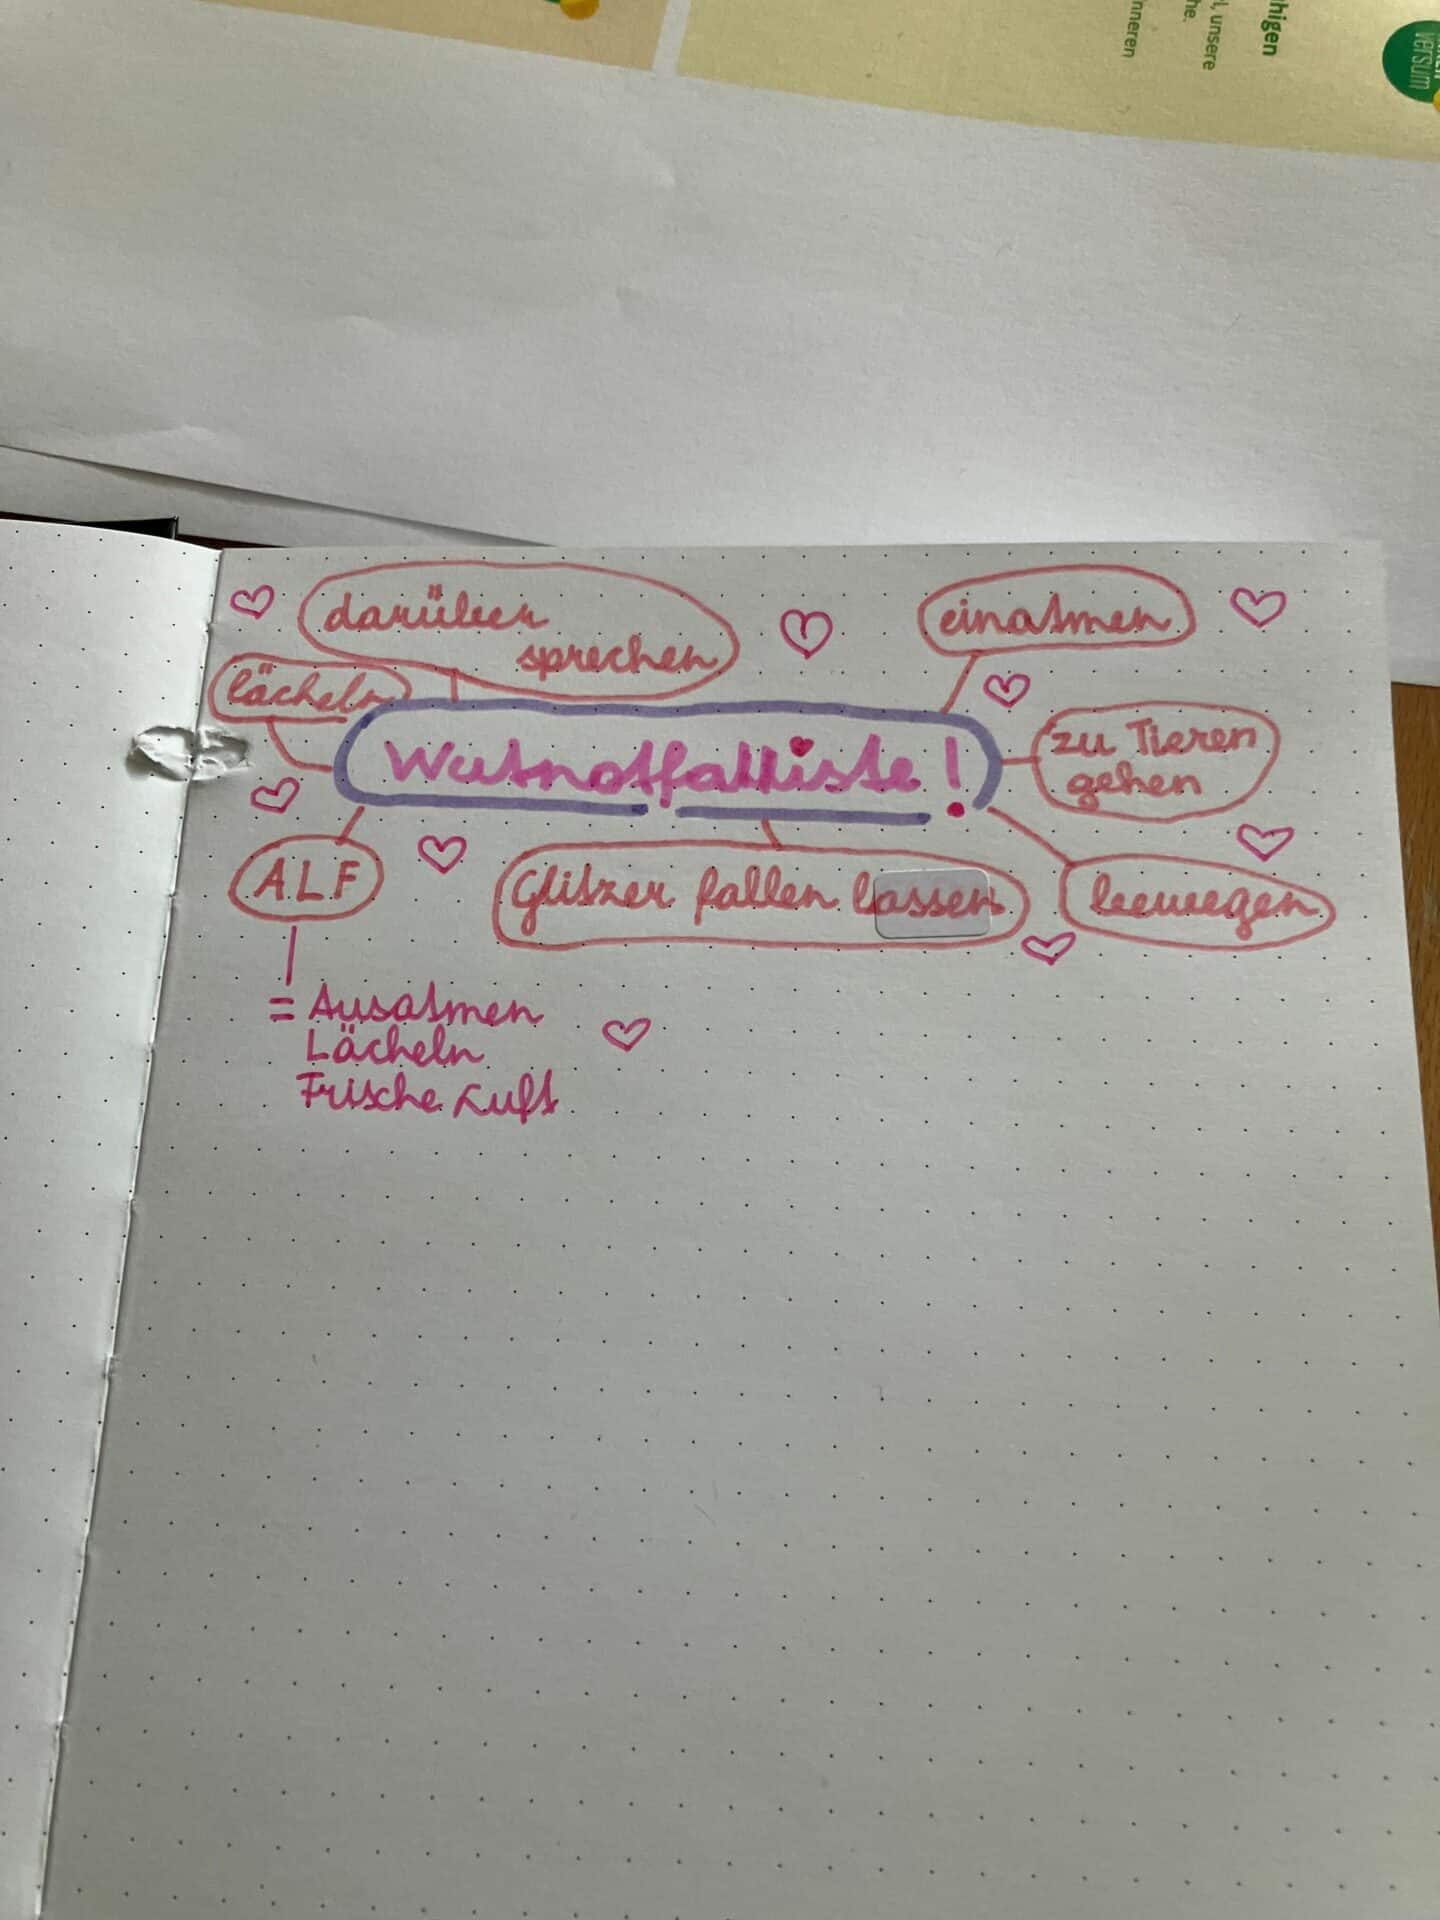 higen
l, unsere
he.
nneren
versum
darüber
sprechen
einatmen
lächeln
Wutnotfallliste!
zu Tieren
gehen
ALF
Glitzer fallen lassen
bewegen
= Ausatmen
Lächeln
Frische Luft